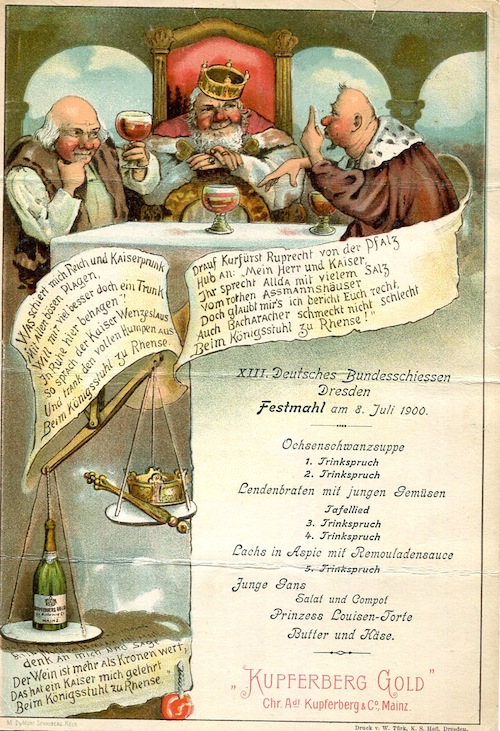 Was schiert mich Reich und Kaiserprunk
Mit allen bösen Plagen,
Will mir viel besser doch ein Trunk
In Ruhe hier behagen!"
So sprach der Kaiser Wenzeslaus
Und trank den vollen Humpen aus
Beim Königsstuhl zu Rhense.
Drauf Kurfürst Ruprecht von der Pfalz
Hub an: „Mein Herr und Kaiser,
Ihr sprecht Allda mit vielem Salz
Vom rothen Assmannshäuser
Doch glaubt mir's ich bericht Euch recht,
Auch Bacharacher schmeckt nicht schlecht
Beim Königsstuhl zu Rhense!"
XIII. Deutsches Bundesschiessen
Dresden
Festmahl am 8. Juli 1900.
Ochsenschwanzsuppe
1. Trinkspruch
2. Trinkspruch
Lendenbraten mit jungen Gemüsen
Tafellied
3. Trinkspruch
4. Trinkspruch
Lachs in Aspic mit Remouladensauce
5. Trinkspruch
Junge Gans
Salat und Compot
Prinzess Louisen-Torte
Butter und Käse.
KUPFERBERG GOLD
MAINZ
denk an mich und sage
Der Wein ist mehr als Kronen wert,
Das hat ein Kaiser mich gelehrt
Beim Königsstuhl zu Rhense.
„KUPFERBERG GOLD"
Chr. Adt Kupferberg & Co, Mainz.
Druck v. W. Türk, K. S. Hofl. Dresden.